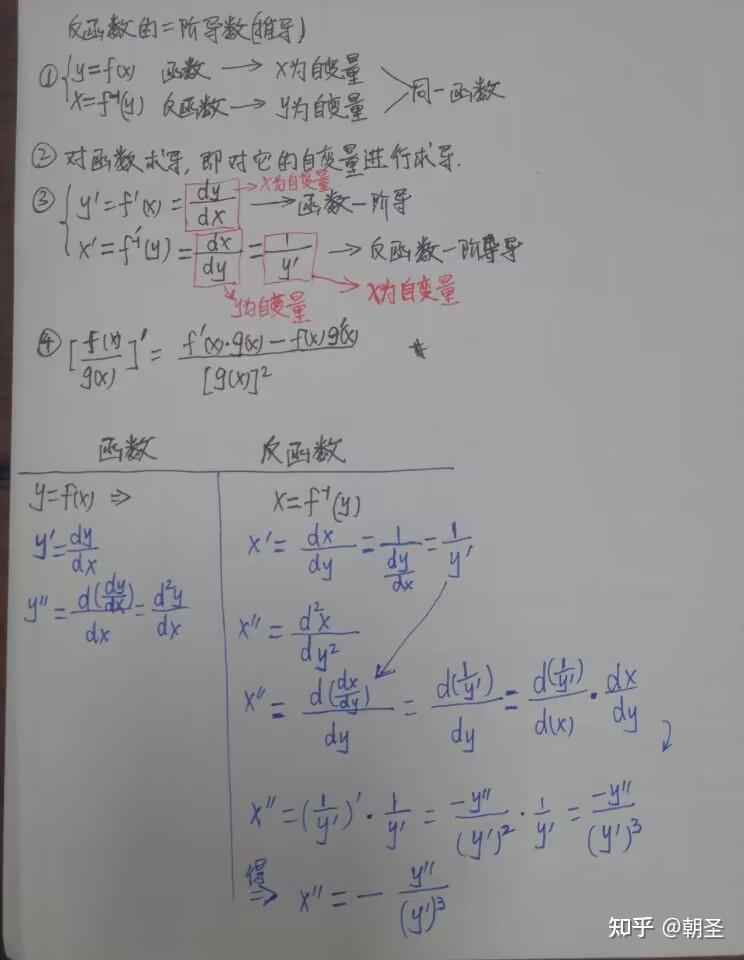 反函数的二阶导数(推导)
① { y=f(x) 函数 → x为自变量
x=f⁻¹(y) 反函数 → y为自变量 > 同一函数
② 对函数求导,即对它的自变量进行求导.
③ { y'=f'(x)= dy/dx → x为自变量 → 函数一阶导
x'=f⁻¹'(y)= dx/dy = 1/y' → 反函数一阶导
y为自变量 x为自变量
④ [f(x)/g(x)]' = (f'(x)·g(x)-f(x)g'(x))/[g(x)]²
函数 反函数
y=f(x) ⇒ x=f⁻¹(y)
y'=dy/dx x'=dx/dy=1/(dy/dx)=1/y'
y''=d(dy/dx)/dx=d²y/dx x''=d²x/dy²
x''=d(dx/dy)/dy=d(1/y')/dy=d(1/y')/d(x)·dx/dy
x''=(1/y')'·1/y'=-y''/(y')²·1/y'=-y''/(y')³
得⇒ x''=-y''/(y')³
知乎 @朝圣